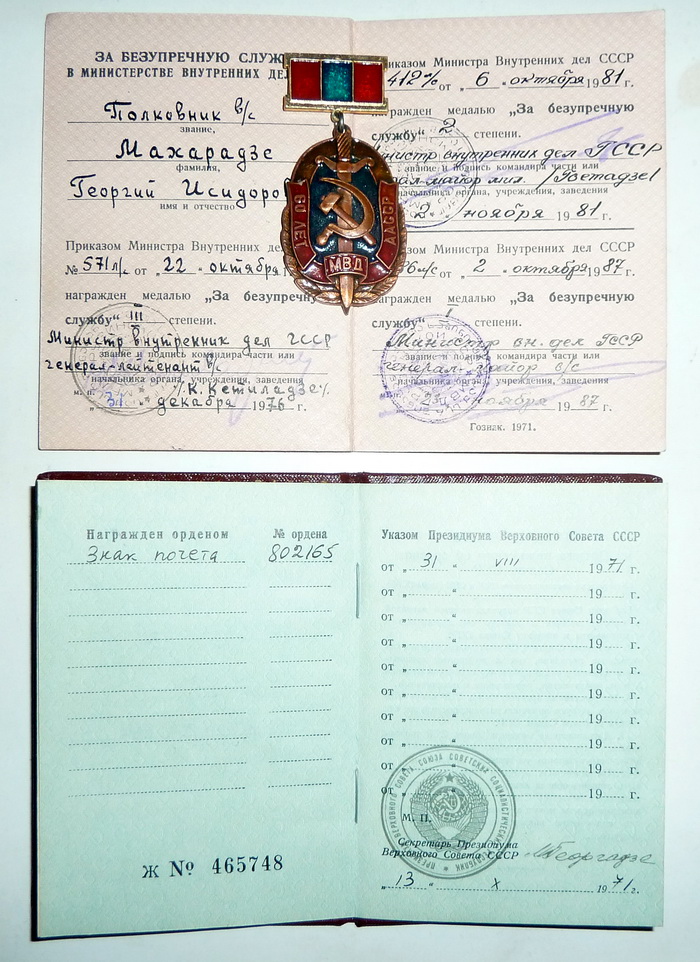 ЗА БЕЗУПРЕЧНУЮ СЛУЖ
В МИНИСТЕРСТВЕ ВНУТРЕННИХ ДЕЛ
Полковник в/с
звание,
Махарадзе
фамилия,
Георгий Исидоро
имя и отчество
Приказом Министра Внутренних де
№ 571 л/с от „ 22 „ октября 1
награжден медалью „За безупречну
службу“ III степени.
Министр внутренник дел ГССР
звание и подпись командира части или
генерал-лейтенант в/с
начальника органа, учреждения, заведения
/К. Кетиладзе/.
м. п. „ 31 “ декабря 1976 г.
риказом Министра Внутренних дел СССР
412 л/с от „ 6 „ октября 1981 г.
награжден медалью „За безупречную
службу“ 2 степени.
инистр внутренник дел ГССР
звание и подпись командира части или
начальника органа, учреждения, заведения
2 ноября 1981 г.
Приказом Министра Внутренних дел СССР
от „ 2 „ октября 1987 г.
награжден медалью „За безупречную
службу“ I степени.
Министр вн. дел ГССР
звание и подпись командира части или
генерал-майор в/с
начальника органа, учреждения, заведения
м. п. ноября 1987 г.
Гознак. 1971.
60 ЛЕТ
ААССР
МВД
Награжден орденом № ордена
Знак почета 802165
Ж № 465748
Указом Президиума Верховного Совета СССР
от „ 31 “ VIII 1971 г.
от „ “ 19 г.
от „ “ 19 г.
от „ “ 19 г.
от „ “ 19 г.
от „ “ 19 г.
от „ “ 19 г.
от „ “ 19 г.
от „ “ 19 г.
от „ “ 19 г.
М. П.
Секретарь Президиума
Верховного Совета СССР М. Георгадзе
„ 13 “ X 1971 г.